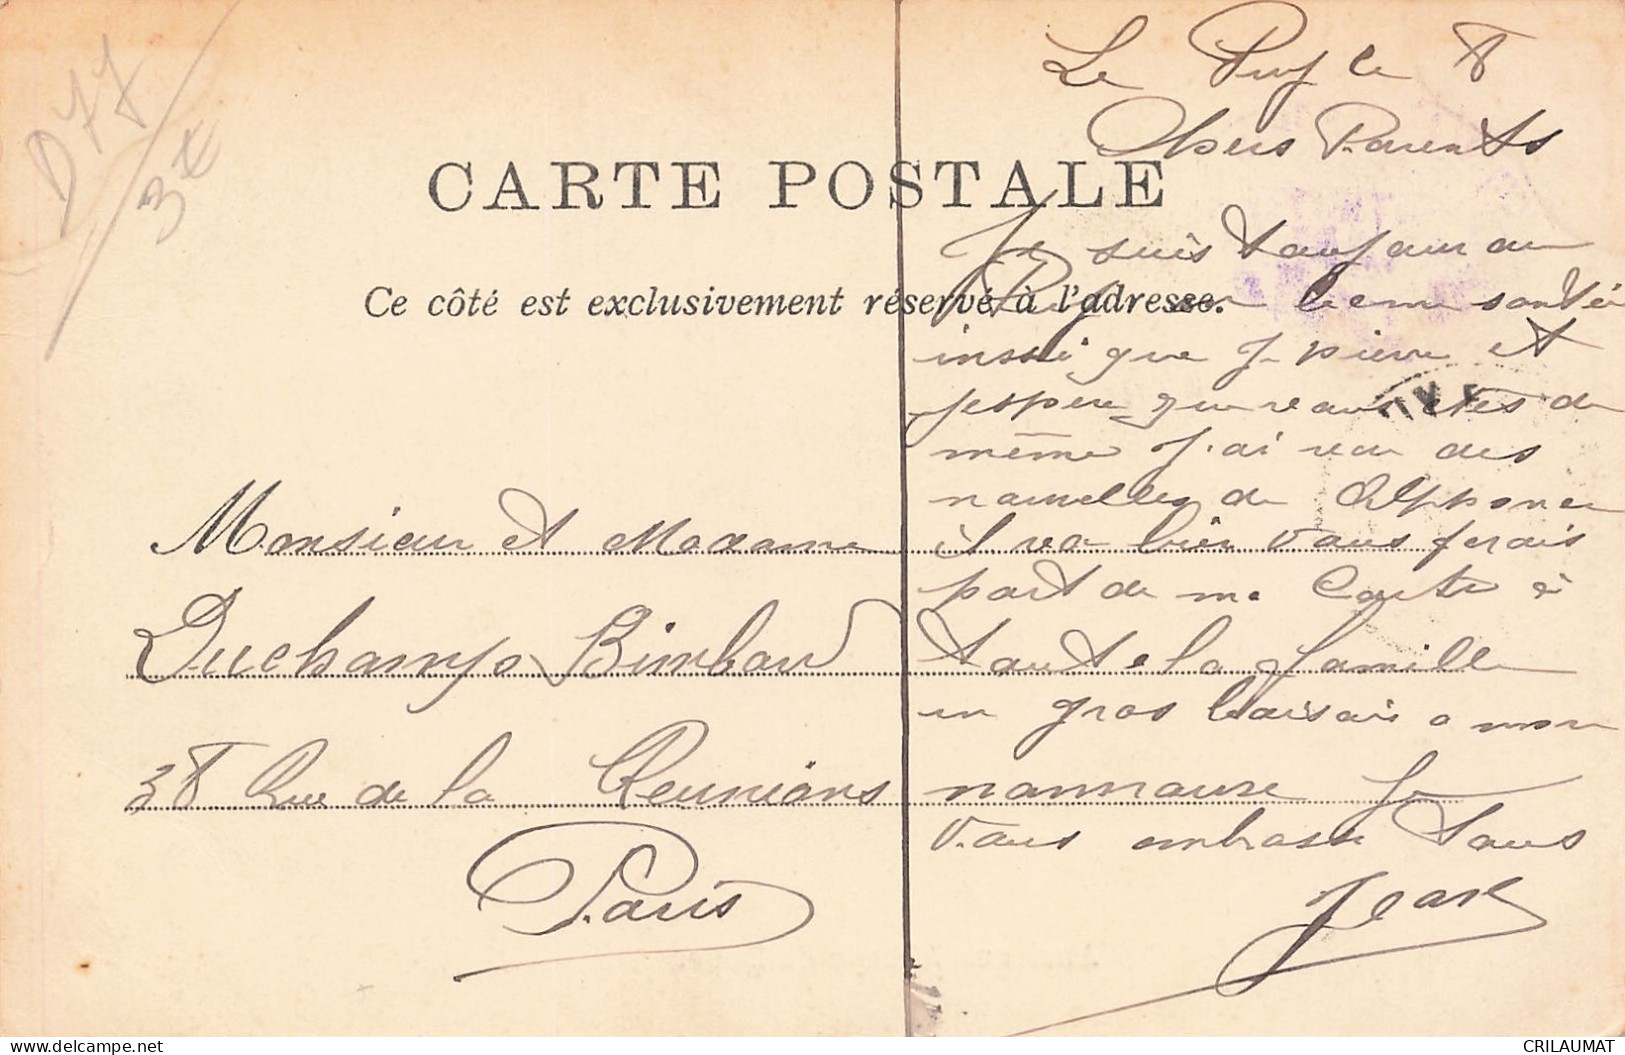 D77
3€
CARTE POSTALE
Ce côté est exclusivement réservé à l'adresse.
Monsieur et Madame
Duchamps Bimbau
38 Rue de la Reunions
Paris
Le Puy le 8
Chers Parents
Je suis toujour au
Puy en bonne santée
insi que pierre et
jespere que vous etes de
même J'ai reçu des
nouvelles de Alpponse
il va bien Vous ferais
part de ma Carte à
toute la famille
un gros baisais a mon
nannause Je
Vous embrasse tous
Jean
CRILAUMAT